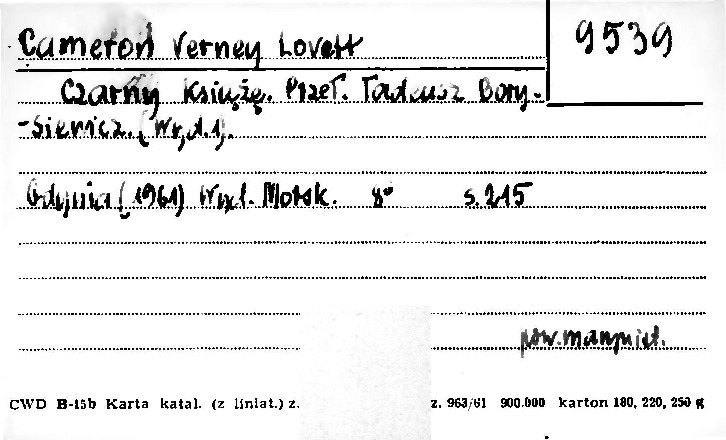 Cameron Verney Lovett
9539
Czarny Książę. Przeł. Tadeusz Bory-
-siewicz. (Wyd. 1).
Gdynia (1961) Wyd. Morsk. 8° s. 215
pow. marynist.
CWD B-15b Karta katal. (z liniat.) z. z. 963/61 900.000 karton 180, 220, 250 g